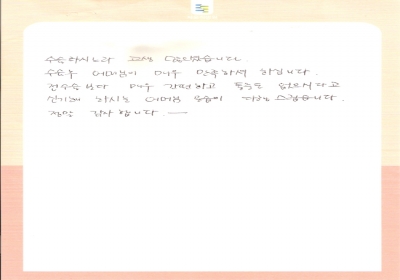 수술하시느라 고생 많으셨습니다.
수술후 어머님이 매우 만족하셔 하십니다.
전수술보다 매우 간편하고 통증도 없으시다고
신기해 하시는 어머님 모습이 다행스럽습니다.
정말 감사합니다.